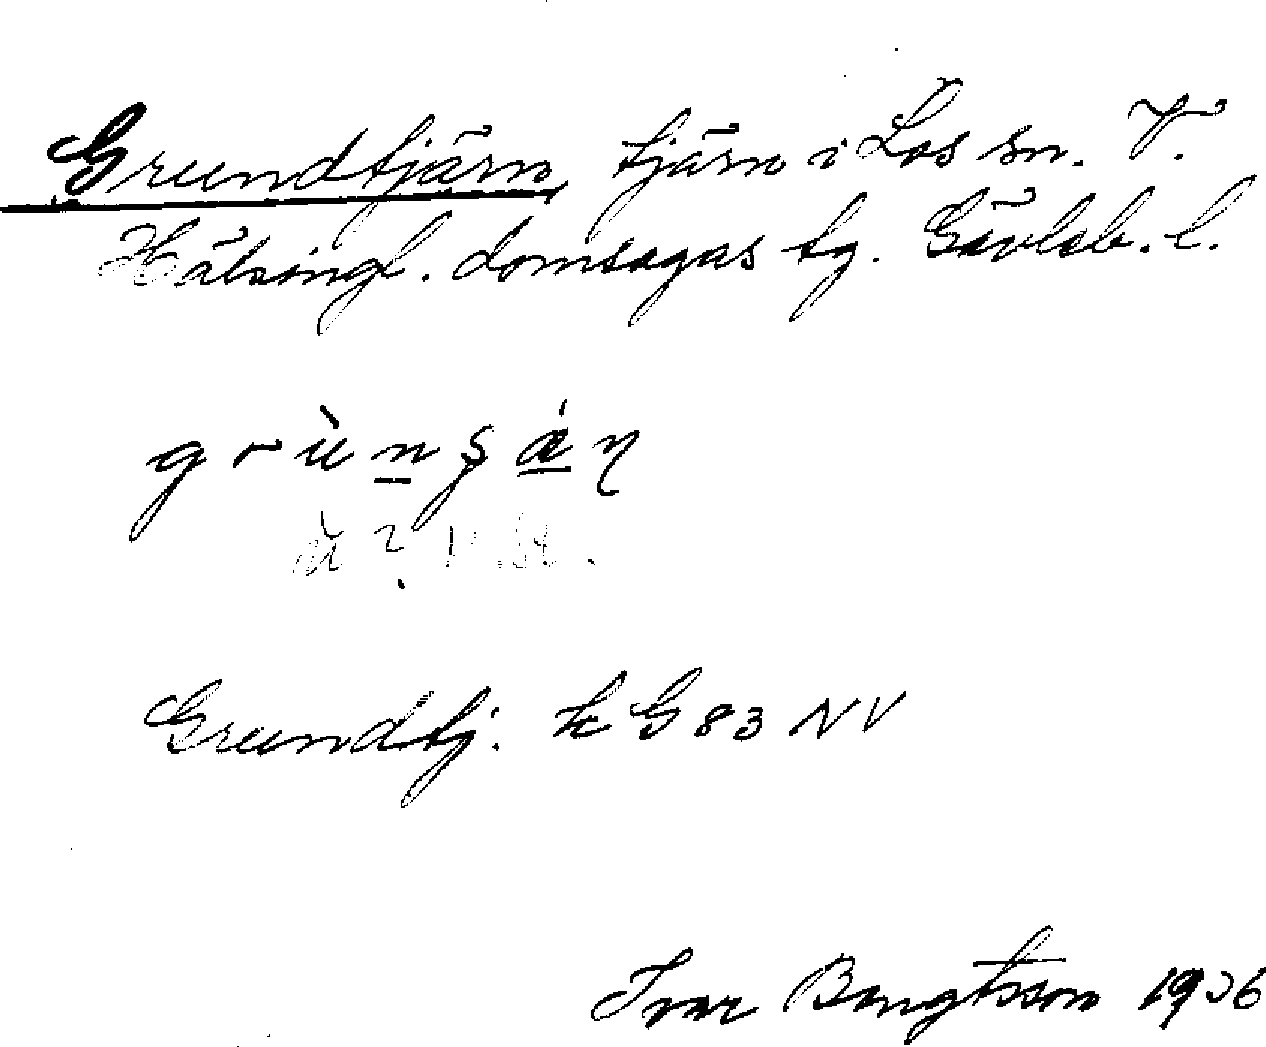 Grundtjärn, tjärn i Los sn. V.
Hälsingl. domsagas tg. Gävleb. l.
grùnʂǽɳ
Grundtj. k G 83 NV
Ivar Bengtsson 1936